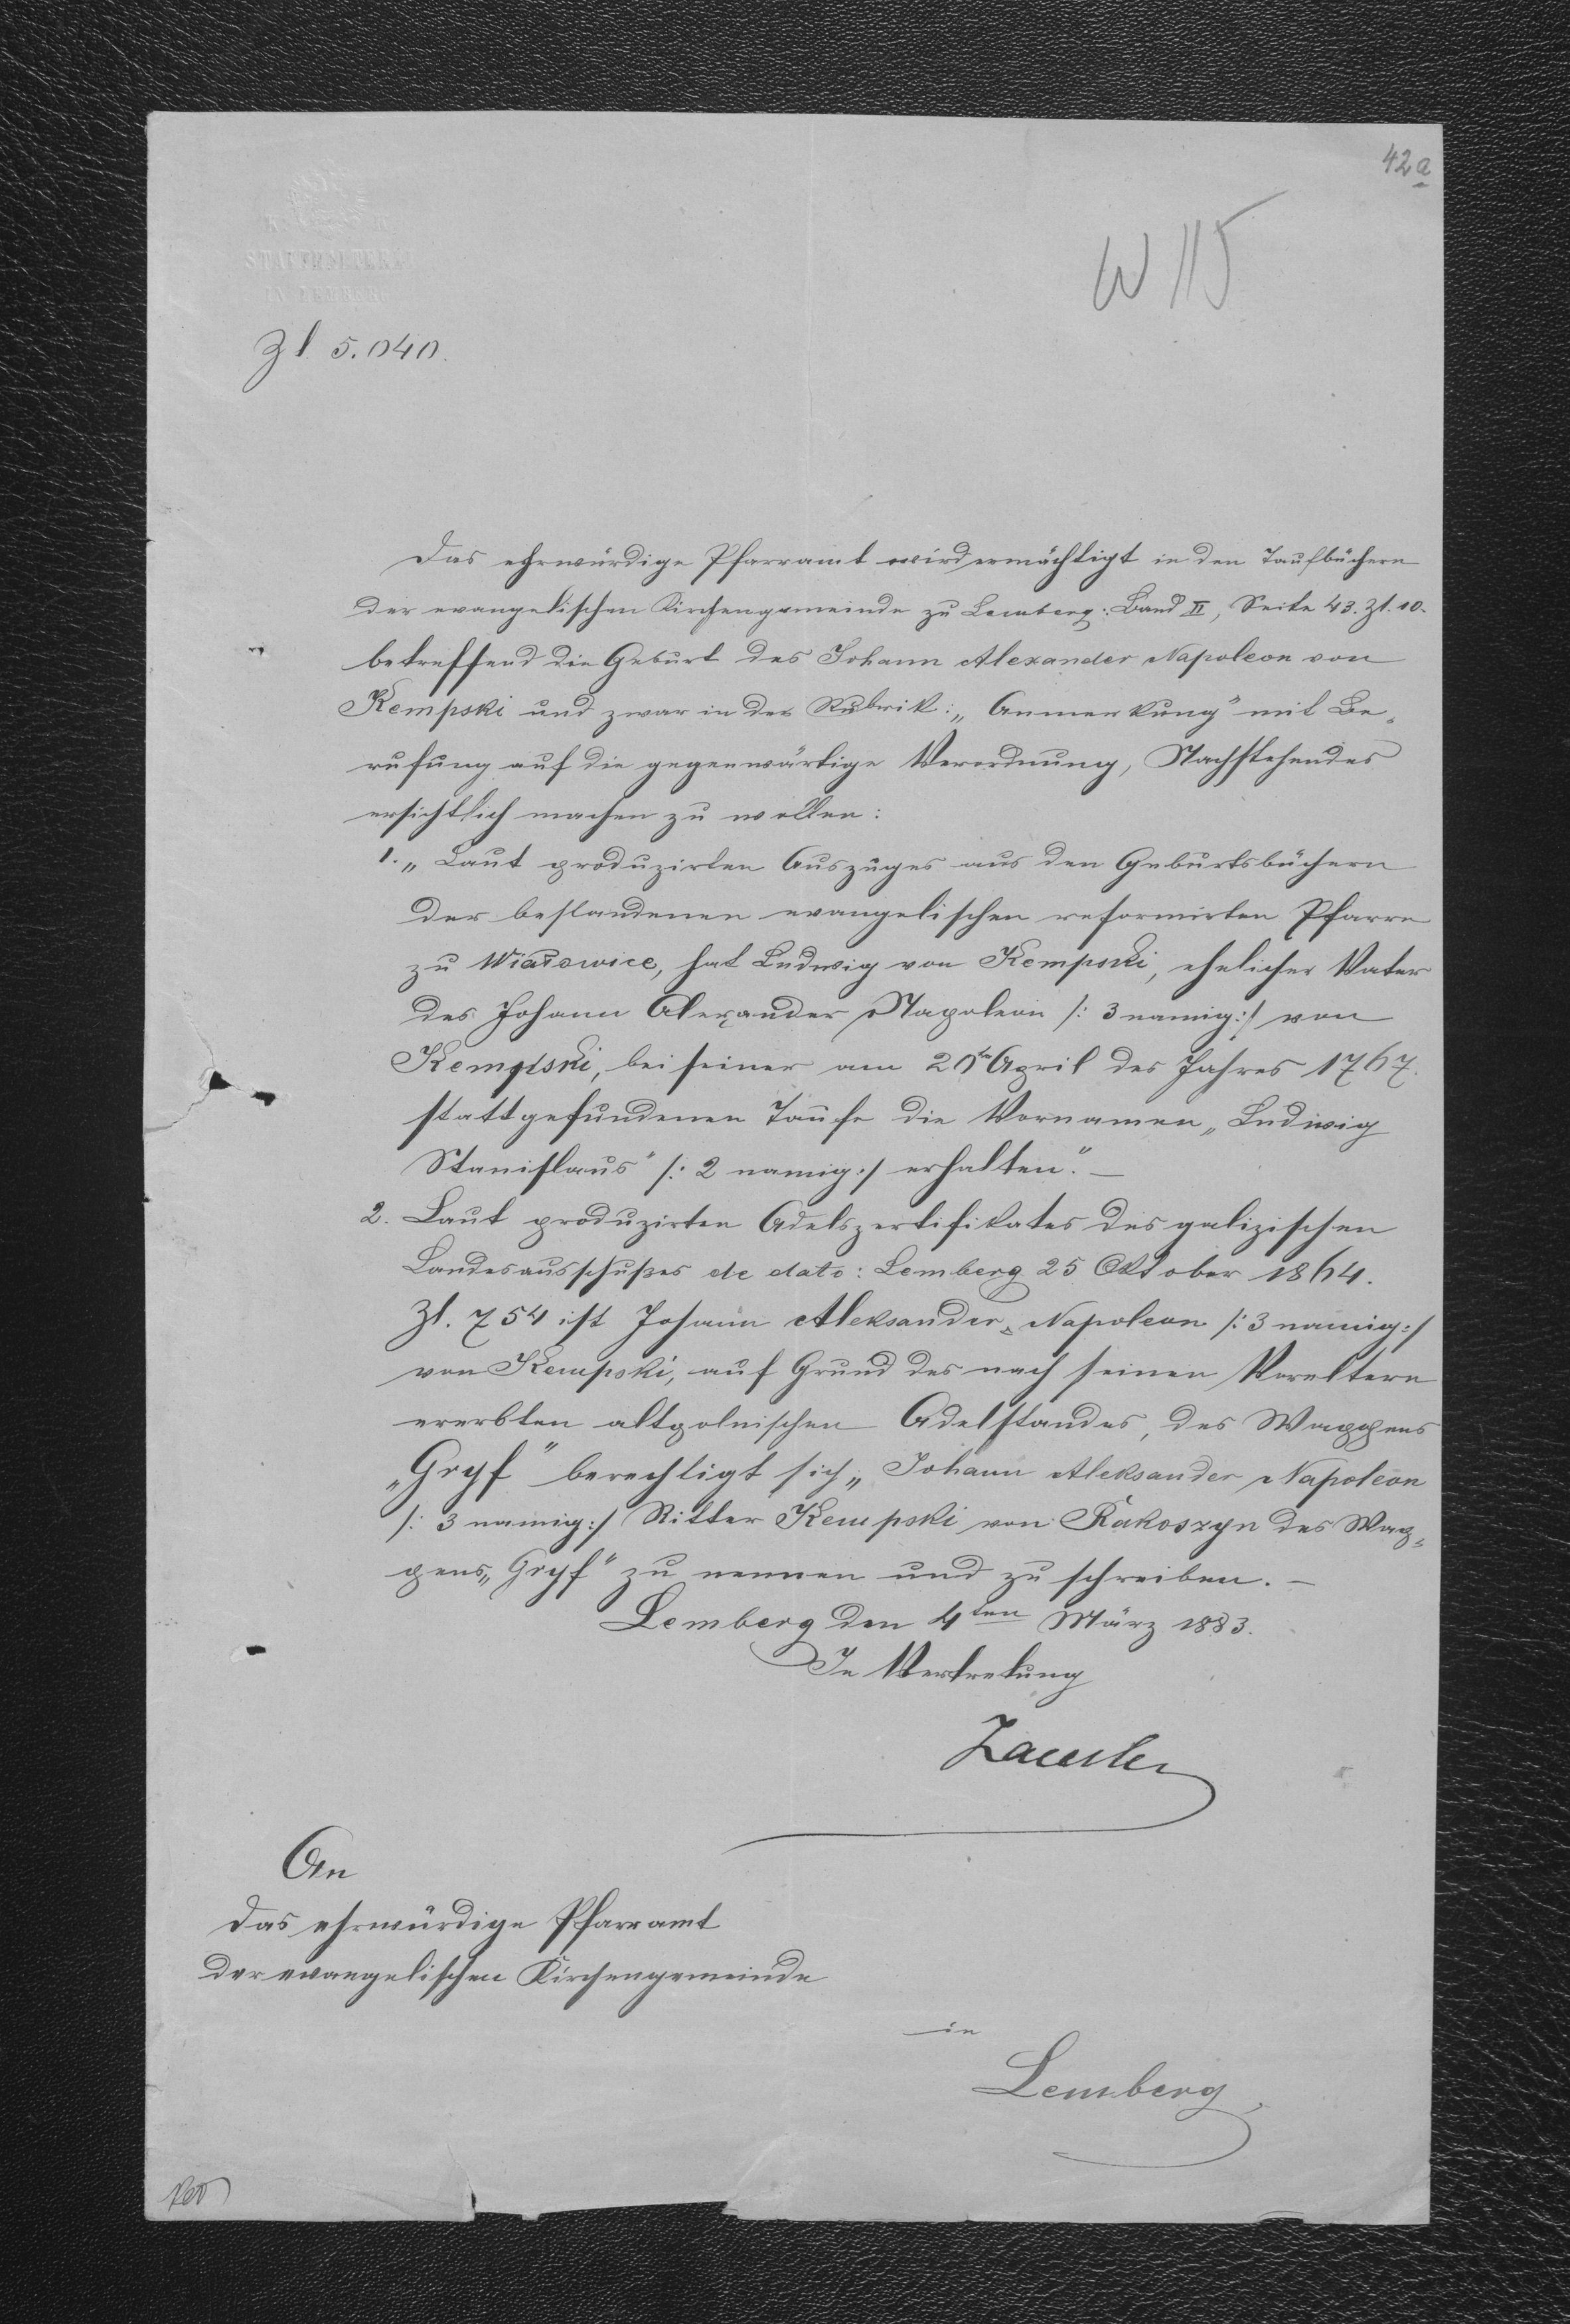 42a
W 115
K. K.
STATTHALTEREI
IN LEMBERG
Zl. 5.040.
Das ehrwürdige Pfarramt wird ermächtigt in den Taufbüchern
der evangelischen Kirchengemeinde zu Lemberg: Band II, Seite 43. Zl. 10.
betreffend die Geburt des Johann Alexander Napoleon von
Kempski und zwar in der Rubrik: „Anmerkung" mit Be-
rufung auf die gegenwärtige Verordnung, Nachstehendes
ersichtlich machen zu wollen:
1. „Laut produzirten Auszuges aus den Geburtsbüchern
der bestandenen evangelischen reformirten Pfarre
zu Wiatowice, hat Ludwig von Kempski, ehelicher Vater
des Johann Alexander Napoleon /: 3 namig :/ von
Kempski, bei seiner am 20ten April des Jahres 1767.
stattgefundenen Taufe die Vornamen „Ludwig
Stanislaus" /: 2 namig :/ erhalten". –
2. Laut produzirten Adelszertifikates des galizischen
Landesausschußes de dato: Lemberg 25 Oktober 1864.
Zl. 754 ist Johann Aleksander Napoleon /: 3 namig :/
von Kempski, auf Grund des nach seinen Voreltern
ererbten altpolnischen Adelstandes, des Wappens
„Gryf" berechtigt sich „Johann Aleksander Napoleon
/: 3 namig :/ Ritter Kempski von Rakoszyn des Wap-
pens „Gryf" zu nennen und zu schreiben. –
Lemberg den 4ten März 1883.
In Vertretung
An
das ehrwürdige Pfarramt
der evangelischen Kirchengemeinde
in
Lemberg